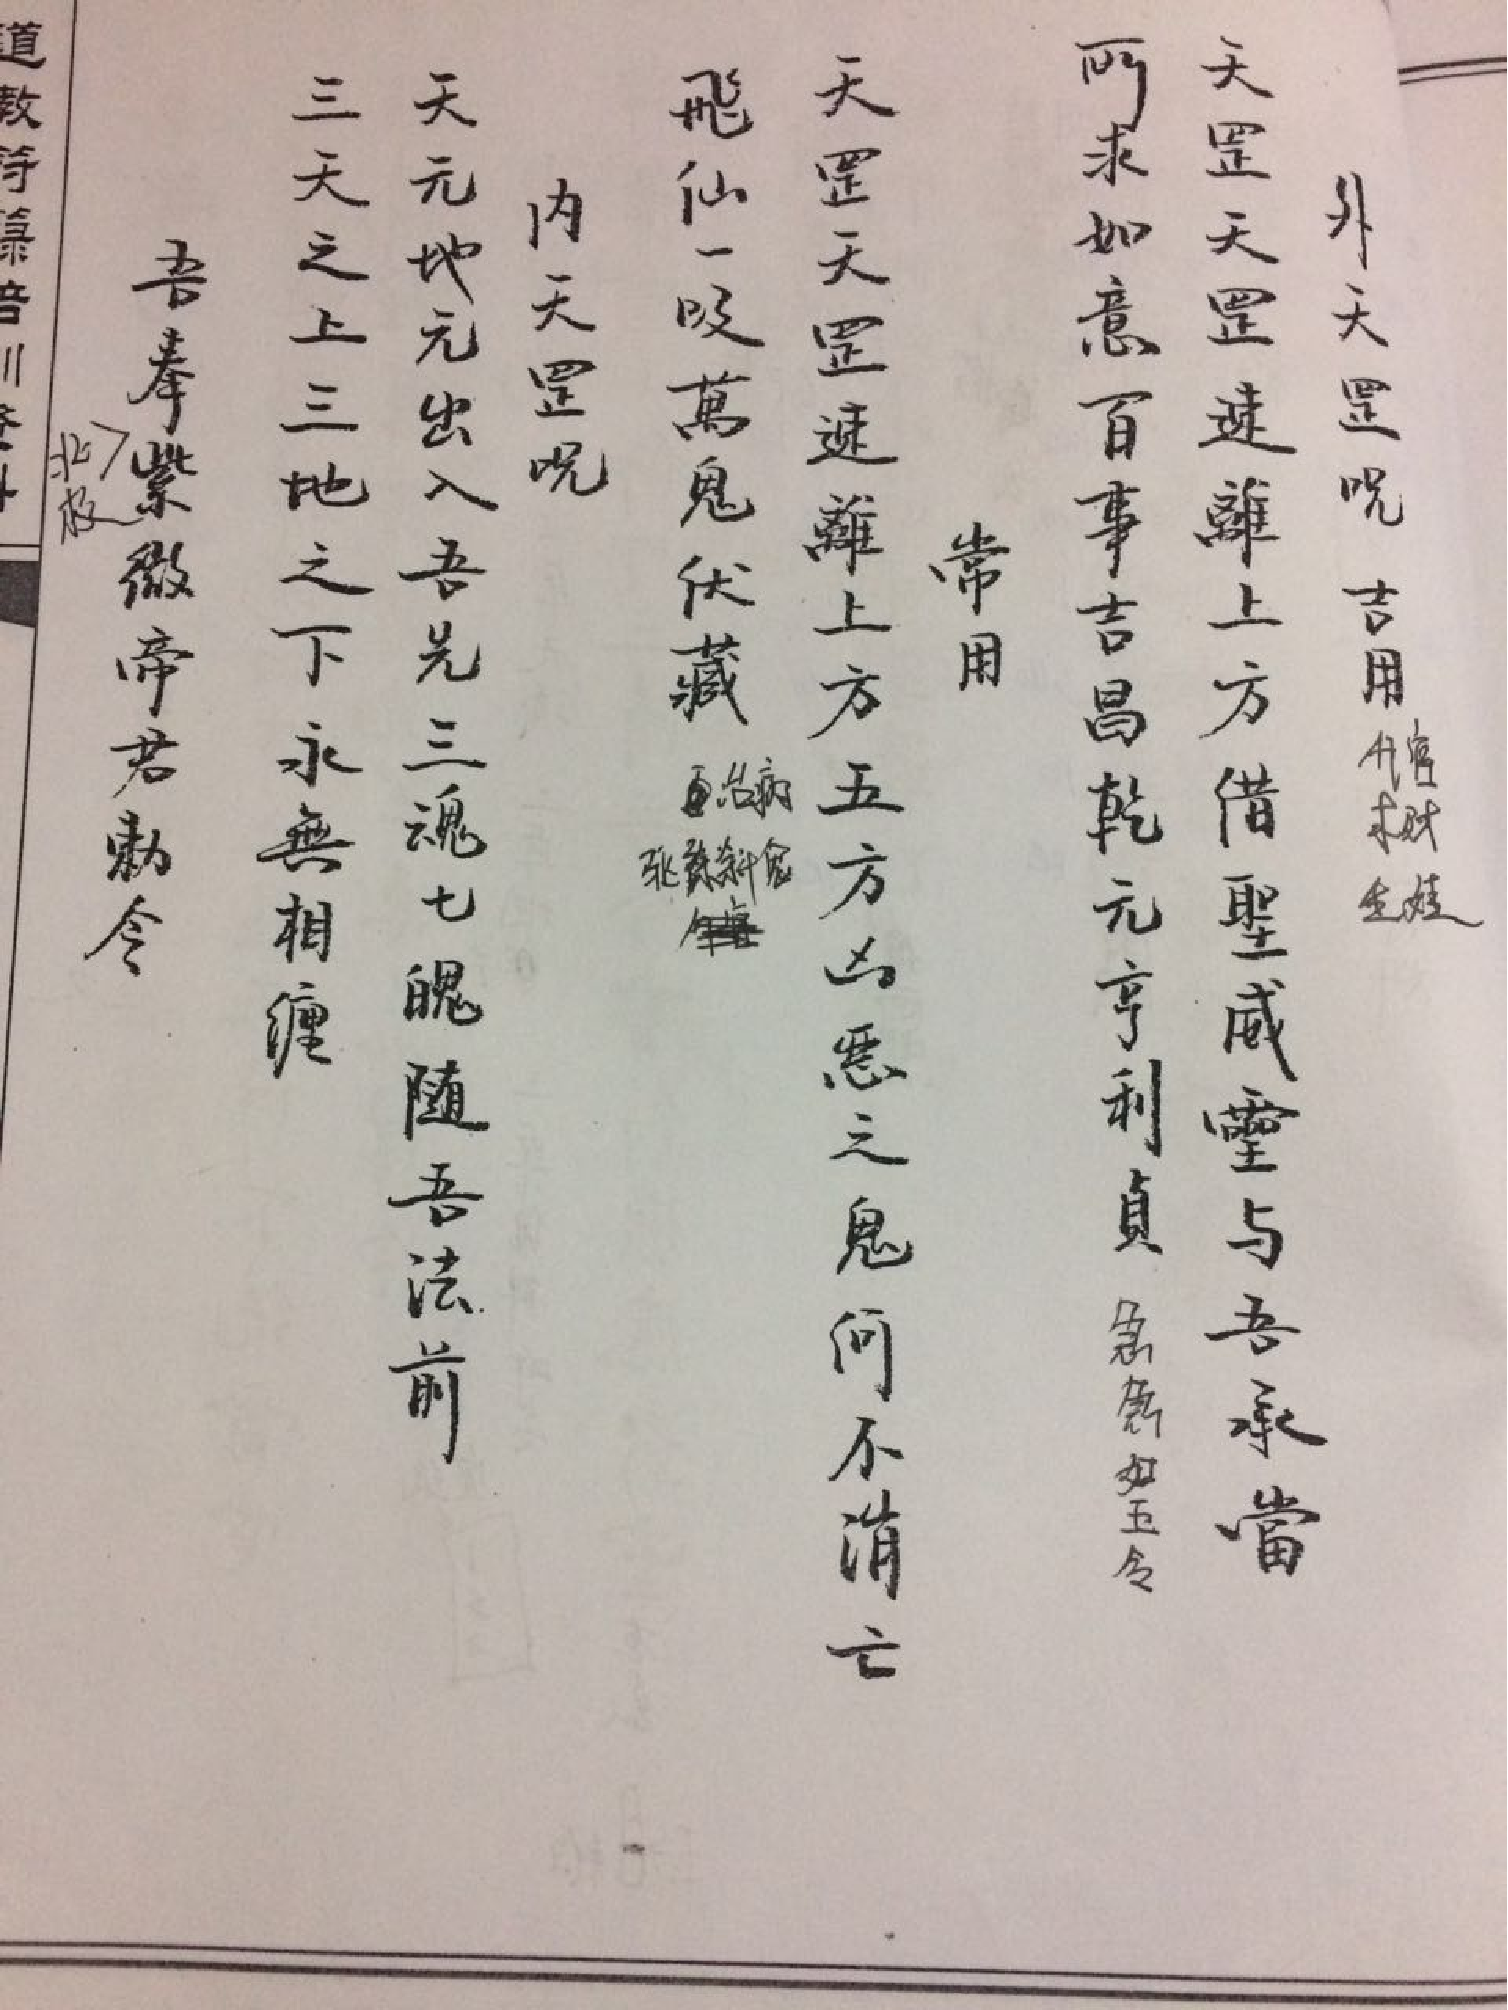 外天罡咒 吉用
升官
求财
生娃
天罡天罡速離上方借聖威靈与吾承當
所求如意百事吉昌乾元亨利貞 急急如玉令
常用
天罡天罡速離上方五方凶恶之鬼何不消亡
飛仙一吸萬鬼伏藏
治病
内天罡咒
天元地元出入吾元三魂七魄随吾法前
三天之上三地之下永無相纏
吾奉紫微帝君勅令
北极
道教符箓培训资料